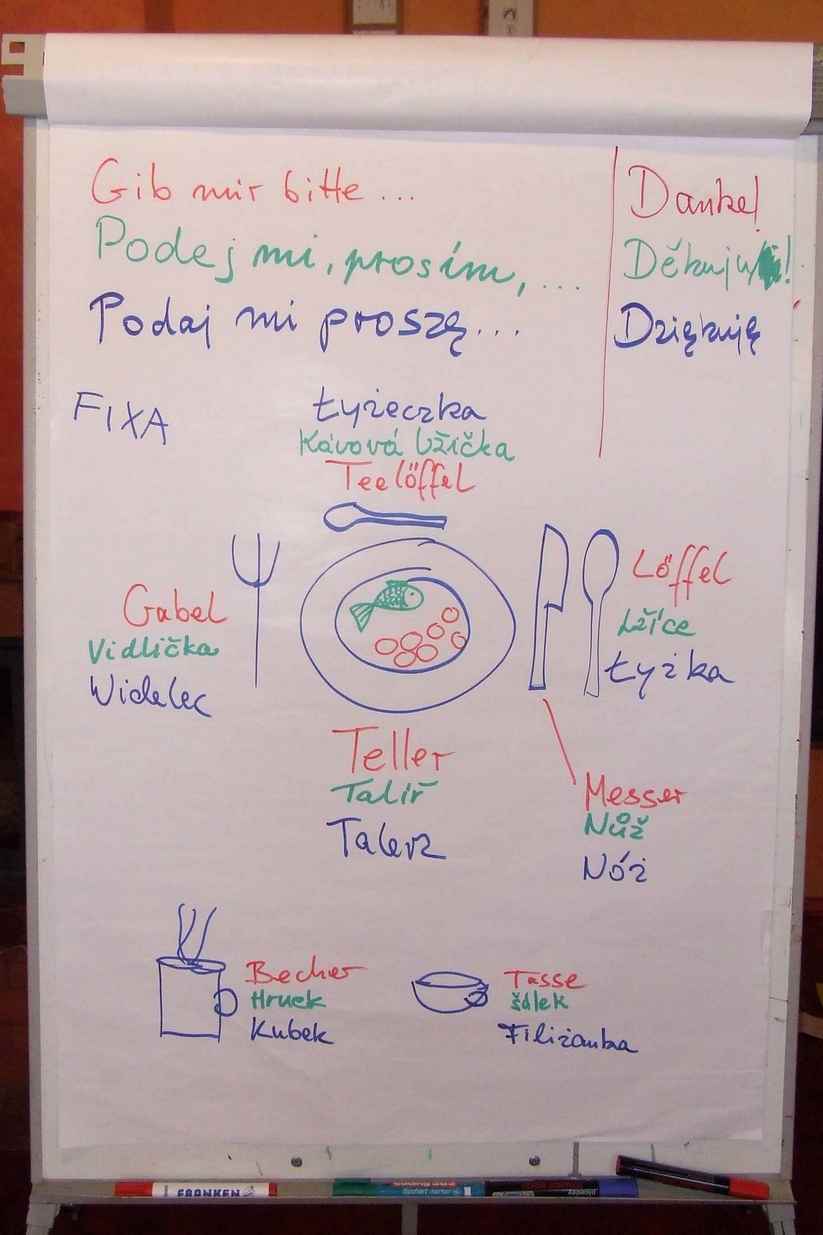 Gib mir bitte ...
Podej mi, prosím, ...
Podaj mi proszę...
Danke!
Děkuju!
Dziękuję
FIXA
Łyżeczka
Kávová lžička
Teelöffel
Gabel
Vidlička
Widelec
Löffel
Lžíce
Łyżka
Teller
Talíř
Talerz
Messer
Nůž
Nóż
Becher
Hrnek
Kubek
Tasse
šálek
Filiżanka
FRANKEN